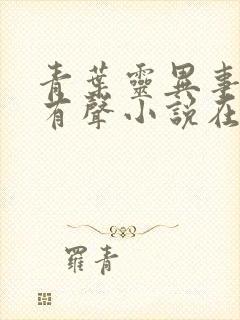 青葉靈異事
有聲小說在
羅青